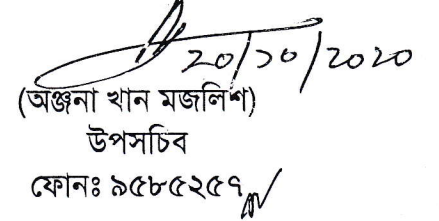 ২০/১০/২০২০
(অঞ্জনা খান মজলিশ)
উপসচিব
ফোনঃ ৯৫৮৫২৫৭